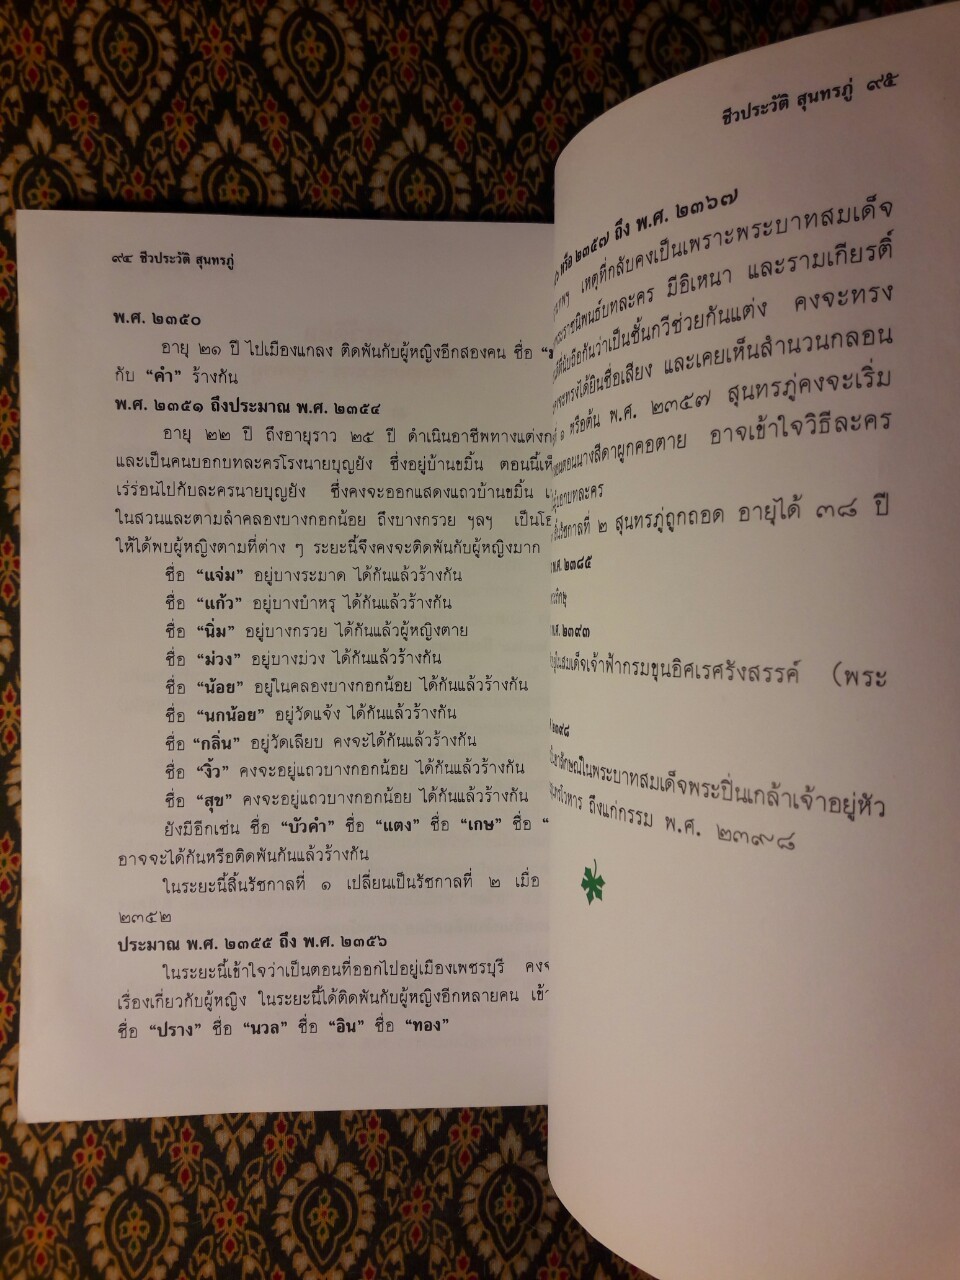 ๙๔ ชีวประวัติ สุนทรภู่
พ.ศ. ๒๓๕๐
อายุ ๒๑ ปี ไปเมืองแกลง ติดพันกับผู้หญิงอีกสองคน ชื่อ
กับ “คำ” ร้างกัน
พ.ศ. ๒๓๕๑ ถึงประมาณ พ.ศ. ๒๓๕๔
อายุ ๒๒ ปี ถึงอายุราว ๒๕ ปี ดำเนินอาชีพทางแต่งก
และเป็นคนบอกบทละครโรงนายบุญยัง ซึ่งอยู่บ้านขมิ้น ตอนนี้เห็
เร่ร่อนไปกับละครนายบุญยัง ซึ่งคงจะออกแสดงแถวบ้านขมิ้น
ในสวนและตามลำคลองบางกอกน้อย ถึงบางกรวย ฯลฯ เป็นโอ
ให้ได้พบผู้หญิงตามที่ต่าง ๆ ระยะนี้จึงคงจะติดพันกับผู้หญิงมาก
ชื่อ “แจ่ม” อยู่บางระมาด ได้กันแล้วร้างกัน
ชื่อ “แก้ว” อยู่บางบำหรุ ได้กันแล้วร้างกัน
ชื่อ “นิ่ม” อยู่บางกรวย ได้กันแล้วผู้หญิงตาย
ชื่อ “ม่วง” อยู่บางม่วง ได้กันแล้วร้างกัน
ชื่อ “น้อย” อยู่ในคลองบางกอกน้อย ได้กันแล้วร้างกัน
ชื่อ “นกน้อย” อยู่วัดแจ้ง ได้กันแล้วร้างกัน
ชื่อ “กลิ่น” อยู่วัดเลียบ คงจะได้กันแล้วร้างกัน
ชื่อ “งิ้ว” คงจะอยู่แถวบางกอกน้อย ได้กันแล้วร้างกัน
ชื่อ “สุข” คงจะอยู่แถวบางกอกน้อย ได้กันแล้วร้างกัน
ยังมีอีกเช่น ชื่อ “บัวคำ” ชื่อ “แตง” ชื่อ “เกษ” ชื่อ
อาจจะได้กันหรือติดพันกันแล้วร้างกัน
ในระยะนี้สิ้นรัชกาลที่ ๑ เปลี่ยนเป็นรัชกาลที่ ๒ เมื่อ
๒๓๕๒
ประมาณ พ.ศ. ๒๓๕๕ ถึง พ.ศ. ๒๓๕๖
ในระยะนี้เข้าใจว่าเป็นตอนที่ออกไปอยู่เมืองเพชรบุรี คงจ
เรื่องเกี่ยวกับผู้หญิง ในระยะนี้ได้ติดพันกับผู้หญิงอีกหลายคน เข้า
ชื่อ “ปราง” ชื่อ “นวล” ชื่อ “อิน” ชื่อ “ทอง”
ชีวประวัติ สุนทรภู่ ๙๕
หรือ ๒๓๕๗ ถึง พ.ศ. ๒๓๖๗
เหตุที่กลับคงเป็นเพราะพระบาทสมเด็จ
พระราชนิพนธ์บทละคร มีอิเหนา และรามเกียรติ์
ที่นับถือกันว่าเป็นชั้นกวีช่วยกันแต่ง คงจะทรง
จะทรงได้ยินชื่อเสียง และเคยเห็นสำนวนกลอน
หรือต้น พ.ศ. ๒๓๕๗ สุนทรภู่คงจะเริ่ม
ตอนนางสีดาผูกคอตาย อาจเข้าใจวิธีละคร
บทละคร
รัชกาลที่ ๒ สุนทรภู่ถูกถอด อายุได้ ๓๘ ปี
พ.ศ. ๒๓๘๕
พ.ศ. ๒๓๙๓
ในสมเด็จเจ้าฟ้ากรมขุนอิศเรศรังสรรค์ (พระ
๒๓๙๘
อาลักษณ์ในพระบาทสมเด็จพระปิ่นเกล้าเจ้าอยู่หัว
โวหาร ถึงแก่กรรม พ.ศ. ๒๓๙๘